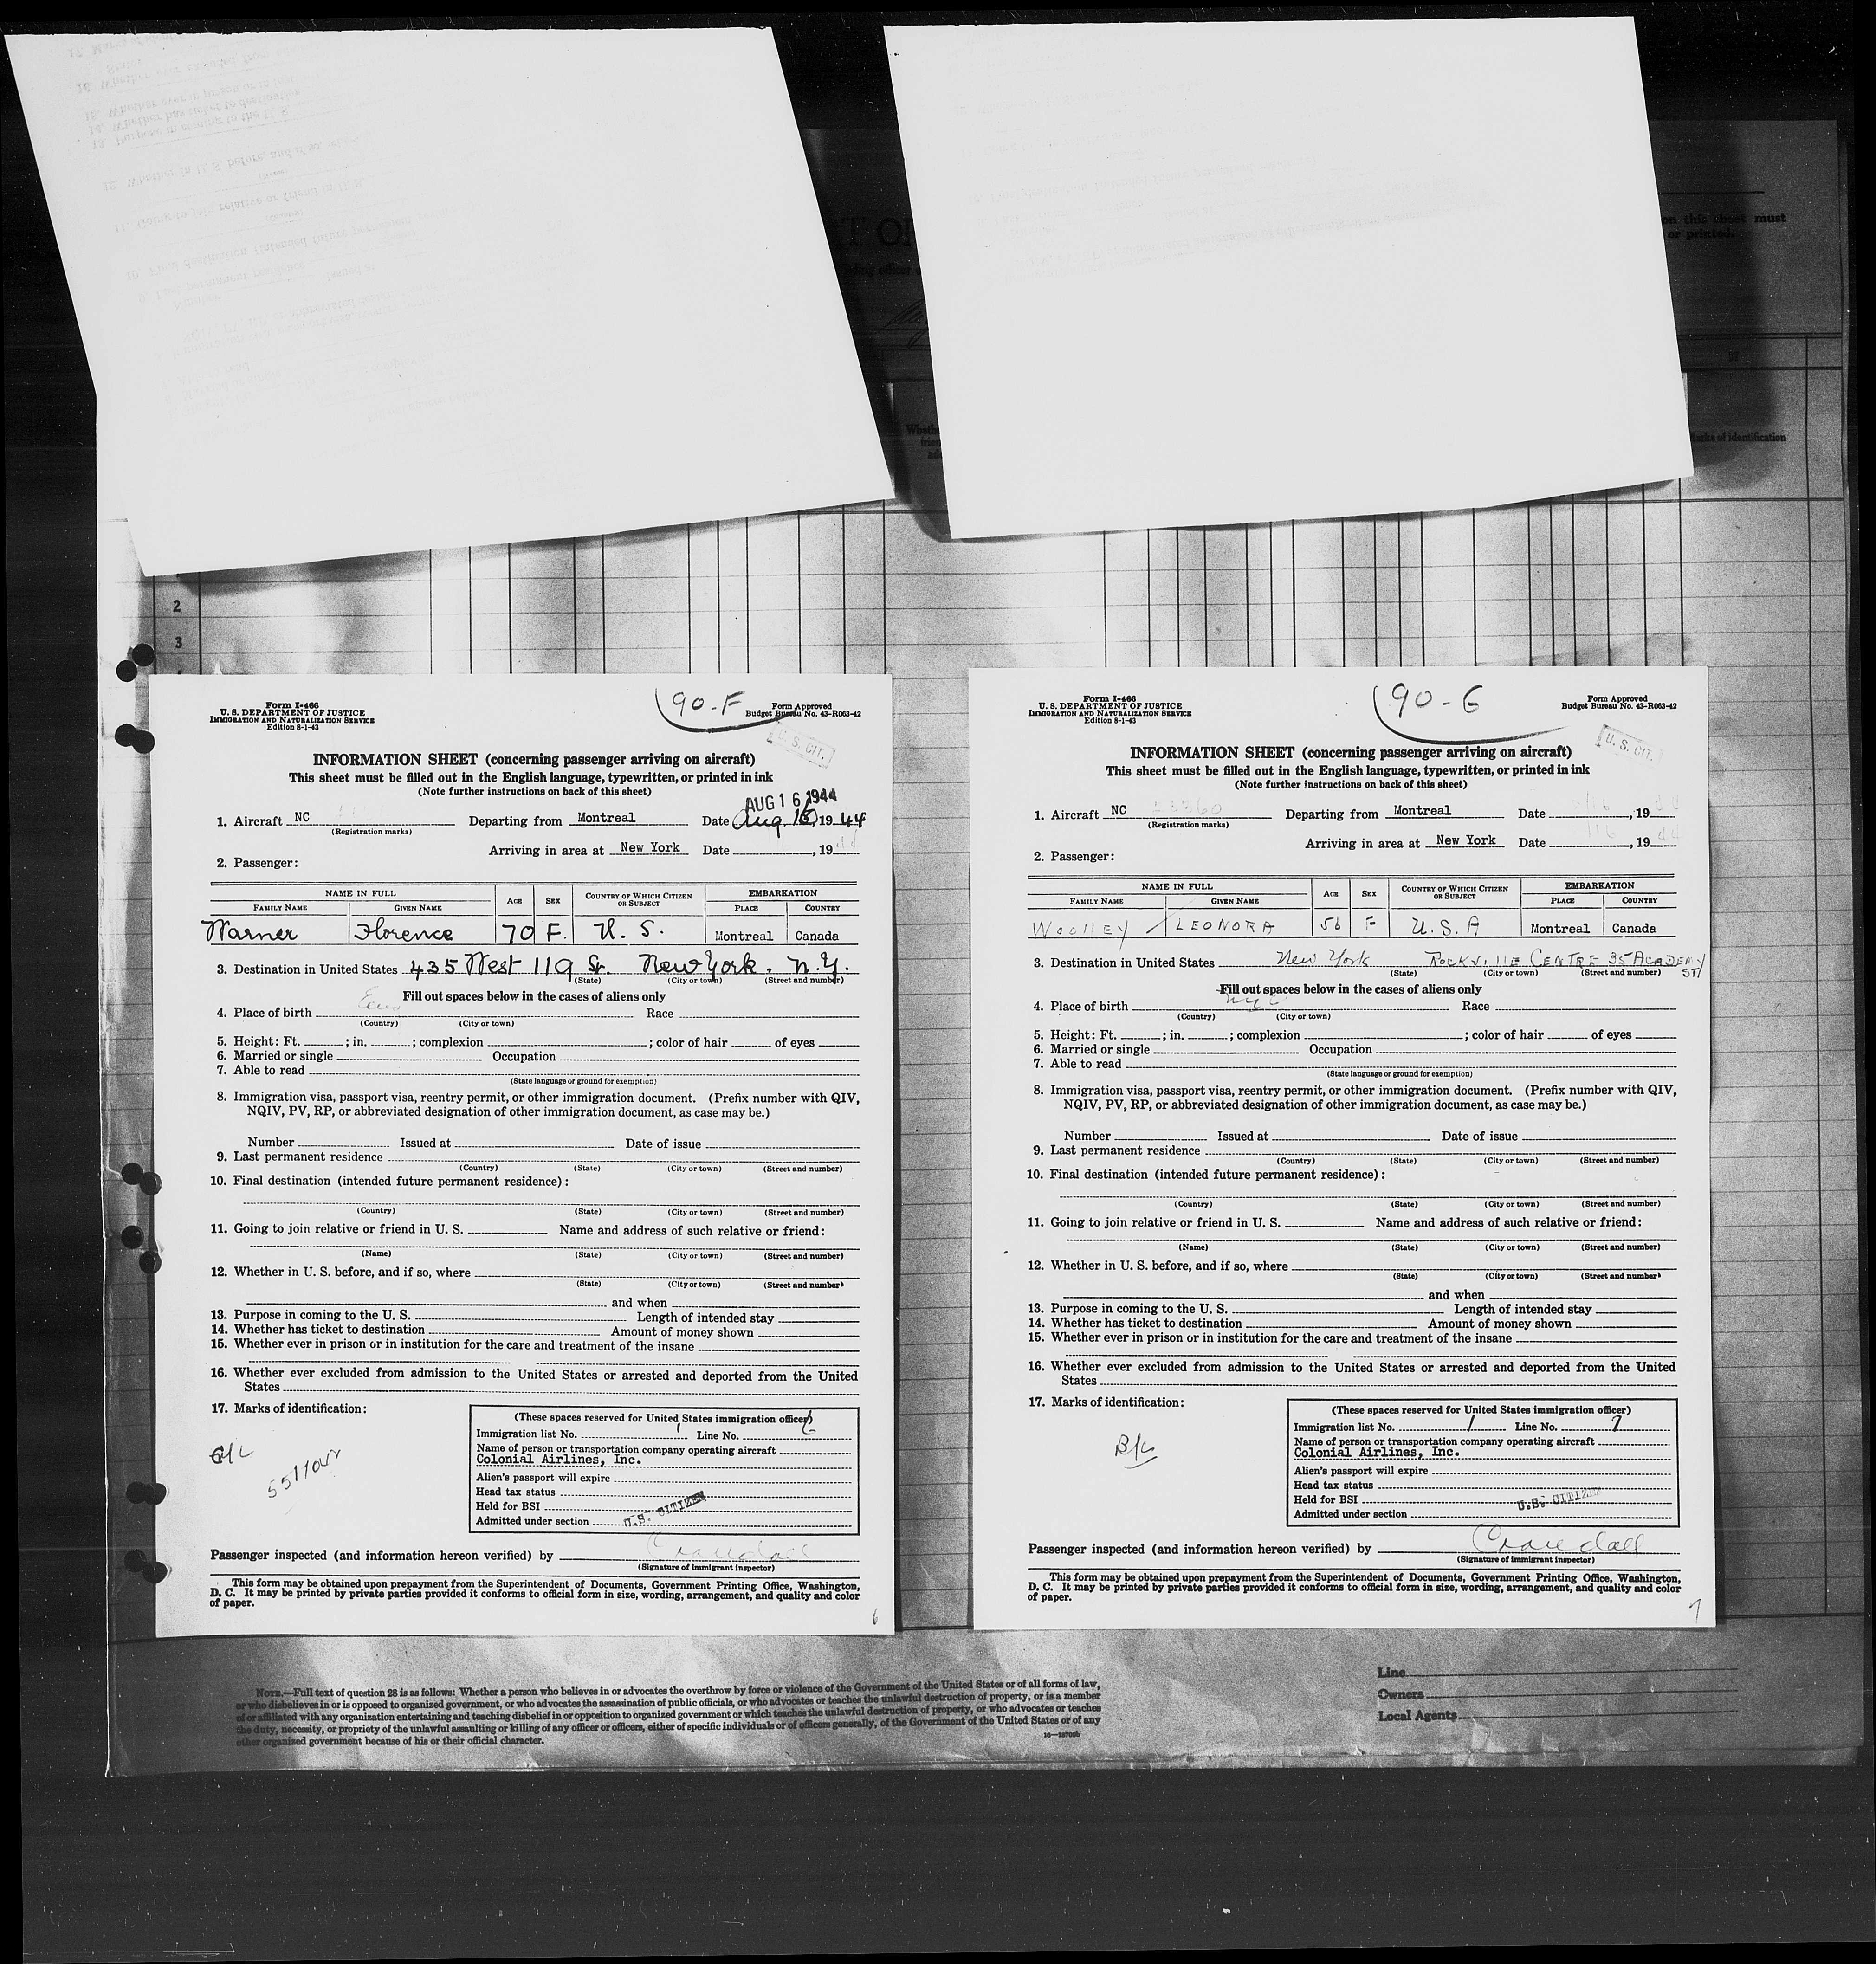 2
3
Form I-466
U. S. DEPARTMENT OF JUSTICE
IMMIGRATION AND NATURALIZATION SERVICE
Edition 8-1-43
90-F
Form Approved
Budget Bureau No. 43-R063-42
U. S. CIT.
INFORMATION SHEET (concerning passenger arriving on aircraft)
This sheet must be filled out in the English language, typewritten, or printed in ink
(Note further instructions on back of this sheet)
AUG 16 1944
1. Aircraft NC Departing from Montreal Date Aug. 16, 1944
(Registration marks)
Arriving in area at New York Date , 19
2. Passenger:
NAME IN FULL AGE SEX COUNTRY OF WHICH CITIZEN OR SUBJECT EMBARKATION
FAMILY NAME GIVEN NAME PLACE COUNTRY
Warner Florence 70 F. U. S. Montreal Canada
3. Destination in United States 435 West 119 St. New York. N.Y.
(State) (City or town) (Street and number)
Fill out spaces below in the cases of aliens only
4. Place of birth Race
(Country) (City or town)
5. Height: Ft. ; in. ; complexion ; color of hair of eyes
6. Married or single Occupation
7. Able to read
(State language or ground for exemption)
8. Immigration visa, passport visa, reentry permit, or other immigration document. (Prefix number with QIV,
NQIV, PV, RP, or abbreviated designation of other immigration document, as case may be.)
Number Issued at Date of issue
9. Last permanent residence
(Country) (State) (City or town) (Street and number)
10. Final destination (intended future permanent residence):
(Country) (State) (City or town) (Street and number)
11. Going to join relative or friend in U. S. Name and address of such relative or friend:
(Name) (State) (City or town) (Street and number)
12. Whether in U. S. before, and if so, where
(State) (City or town) (Street and number)
and when
13. Purpose in coming to the U. S. Length of intended stay
14. Whether has ticket to destination Amount of money shown
15. Whether ever in prison or in institution for the care and treatment of the insane
16. Whether ever excluded from admission to the United States or arrested and deported from the United
States
17. Marks of identification:
(These spaces reserved for United States immigration officer)
Immigration list No. 1 Line No. 6
Name of person or transportation company operating aircraft
Colonial Airlines, Inc.
Alien's passport will expire
Head tax status
Held for BSI
U.S. CITIZEN
Admitted under section
Passenger inspected (and information hereon verified) by Crandall
(Signature of Immigrant Inspector)
This form may be obtained upon prepayment from the Superintendent of Documents, Government Printing Office, Washington,
D. C. It may be printed by private parties provided it conforms to official form in size, wording, arrangement, and quality and color
of paper.
6
Form I-466
U. S. DEPARTMENT OF JUSTICE
IMMIGRATION AND NATURALIZATION SERVICE
Edition 8-1-43
90-G
Form Approved
Budget Bureau No. 43-R063-42
U. S. CIT.
INFORMATION SHEET (concerning passenger arriving on aircraft)
This sheet must be filled out in the English language, typewritten, or printed in ink
(Note further instructions on back of this sheet)
1. Aircraft NC Departing from Montreal Date , 19
(Registration marks)
Arriving in area at New York Date , 19
2. Passenger:
NAME IN FULL AGE SEX COUNTRY OF WHICH CITIZEN OR SUBJECT EMBARKATION
FAMILY NAME GIVEN NAME PLACE COUNTRY
WOOLLEY LEONORA 56 F U.S.A Montreal Canada
3. Destination in United States New York ROCKVILLE CENTRE 35 ACADEMY ST
(State) (City or town) (Street and number)
Fill out spaces below in the cases of aliens only
4. Place of birth NYC Race
(Country) (City or town)
5. Height: Ft. ; in. ; complexion ; color of hair of eyes
6. Married or single Occupation
7. Able to read
(State language or ground for exemption)
8. Immigration visa, passport visa, reentry permit, or other immigration document. (Prefix number with QIV,
NQIV, PV, RP, or abbreviated designation of other immigration document, as case may be.)
Number Issued at Date of issue
9. Last permanent residence
(Country) (State) (City or town) (Street and number)
10. Final destination (intended future permanent residence):
(Country) (State) (City or town) (Street and number)
11. Going to join relative or friend in U. S. Name and address of such relative or friend:
(Name) (State) (City or town) (Street and number)
12. Whether in U. S. before, and if so, where
(State) (City or town) (Street and number)
and when
13. Purpose in coming to the U. S. Length of intended stay
14. Whether has ticket to destination Amount of money shown
15. Whether ever in prison or in institution for the care and treatment of the insane
16. Whether ever excluded from admission to the United States or arrested and deported from the United
States
17. Marks of identification:
B/C
(These spaces reserved for United States immigration officer)
Immigration list No. 1 Line No. 7
Name of person or transportation company operating aircraft
Colonial Airlines, Inc.
Alien's passport will expire
Head tax status
Held for BSI U.S. CITIZEN
Admitted under section
Passenger inspected (and information hereon verified) by Crandall
(Signature of Immigrant Inspector)
This form may be obtained upon prepayment from the Superintendent of Documents, Government Printing Office, Washington,
D. C. It may be printed by private parties provided it conforms to official form in size, wording, arrangement, and quality and color
of paper.
7
NOTE.—Full text of question 28 is as follows: Whether a person who believes in or advocates the overthrow by force or violence of the Government of the United States or of all forms of law,
or who disbelieves in or is opposed to organized government, or who advocates the assassination of public officials, or who advocates or teaches the unlawful destruction of property, or is a member
of or affiliated with any organization entertaining and teaching disbelief in or opposition to organized government or which teaches the unlawful destruction of property, or who advocates or teaches
the duty, necessity, or propriety of the unlawful assaulting or killing of any officer or officers, either of specific individuals or of officers generally, of the Government of the United States or of any
other organized government because of his or their official character.
Line
Owners
Local Agents